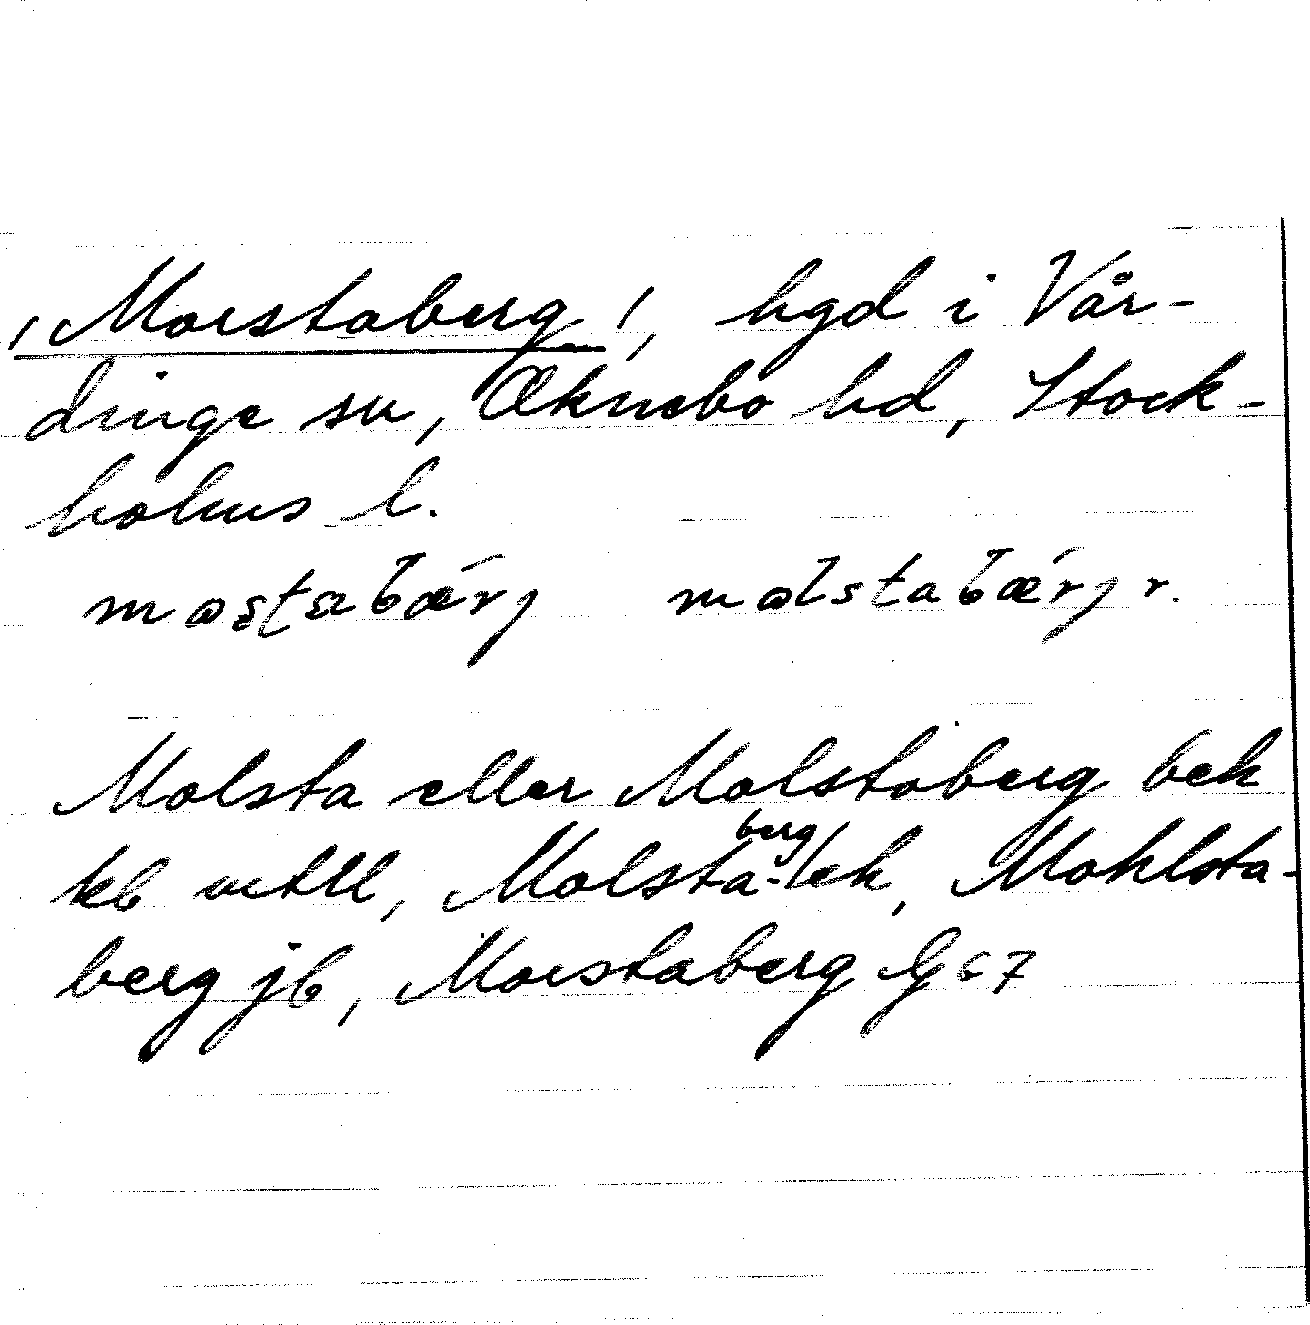 /Morstaberg/, hgd i Vår-
dinge sn, Öknebo hd, Stock-
holms l.
mastabærj malstabærj r.
Molsta eller Molstaberg bek
kb mtll, Molstaberg lek, Mohlsta-
berg jb, Morstaberg G 67